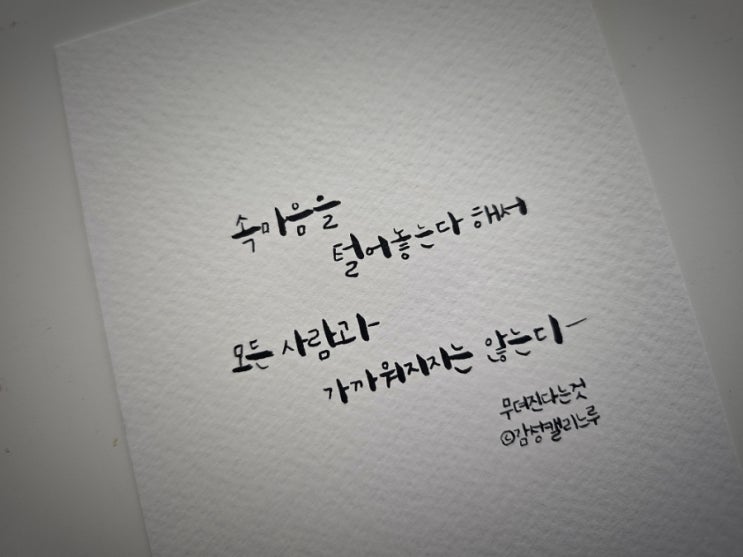 속마음을
털어놓는다 해서
모든 사람과
가까워지지는 않는다
무뎌진다는것
©감성캘리느루